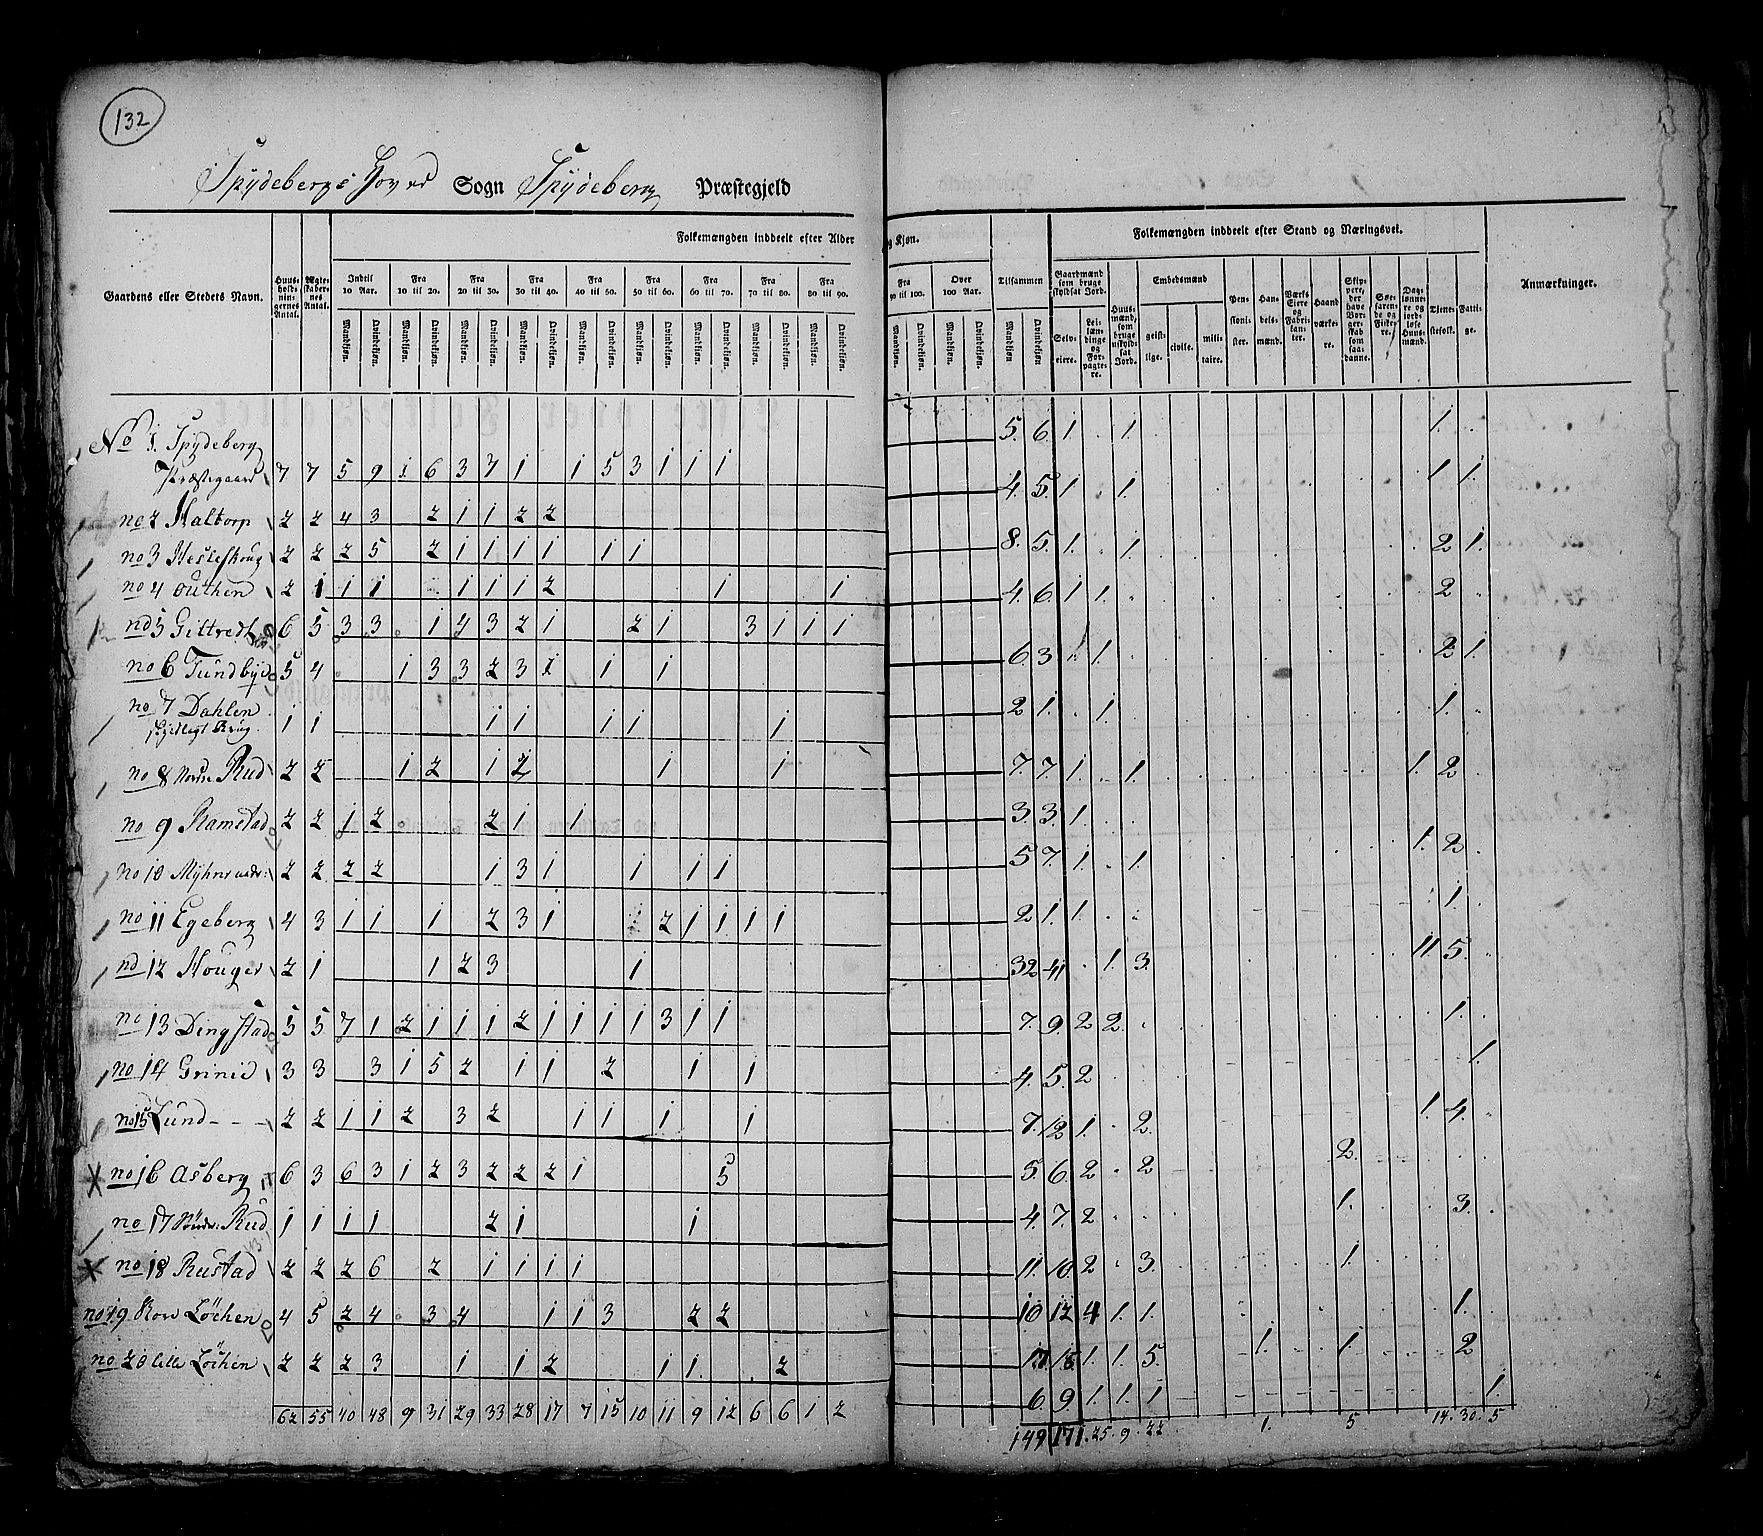 132
Spydebergs Hoved Sogn Spydeberg Præstegjeld
Folkemængden inddeelt efter Alder og Kjøn.
Folkemængden inddeelt efter Stand og Næringsvei.
Gaardens eller Stedets Navn.
Huusholdningernes Antal.
Ægteskabernes Antal.
Indtil 10 Aar.
Fra 10 til 20.
Fra 20 til 30.
Fra 30 til 40.
Fra 40 til 50.
Fra 50 til 60.
Fra 60 til 70.
Fra 70 til 80.
Fra 80 til 90.
Fra 90 til 100.
Over 100 Aar.
Tilsammen
Mandkjøn. Qvindekjøn.
Gaardmænd som bruge skyldsat Jord.
Selveiere.
Leilændinge og Forpagtere.
Huusmænd, som bruge uskyldsat Jord.
Embedsmænd
geistlige. civile. militaire.
Pensionister.
Handelsmænd.
Værks Eiere og Fabrikanter.
Haandværkere.
Skippere, der have Borgerskab som saadanne.
Søefarende og Fiskere.
Daglønnere og jordløse Huusmænd.
Tjenestefolk.
Fattige.
Anmærkninger.
No 1. Spydeberg
Præstegaard 7 7 5 9 1 6 3 7 1 1 5 3 1 1 1
no 2 2 2 4 3 2 1 1 2 2
no 3 2 2 2 5 2 1 1 1 1 1 1
no 4 Outhen 2 1 1 1 1 1 1 2 1 1
no 5 6 5 3 3 1 4 3 2 1 2 1 3 1 1 1
no 6 5 4 1 3 3 2 3 1 1 1
no 7 Dahlen
1 1 1 1 1 1 1
no 8 Rud 2 2 1 2 1 2 1 1
no 9 Ramstad 2 2 1 2 2 1 1
no 10 2 2 2 2 1 3 1 1 1 1
no 11 Egeberg 4 3 1 1 1 2 3 1 2 1 1 1 1
no 12 2 1 1 2 3 1
no 13 Dingstad 5 5 7 1 2 1 1 1 2 1 1 1 1 3 1 1
no 14 Grinie 3 3 3 1 5 2 1 1 2 1 1
no 15 Lund - - - 2 2 1 1 2 3 2 1 1 1 1
no 16 Asberg 6 3 6 3 1 2 3 2 2 2 1 5
no 17 Rud 1 1 1 1 2 1 1
no 18 Rustad 2 2 2 6 2 1 1 1 1
no 19 Løchen 4 5 2 4 3 4 1 1 3 2 2
no 20 Lille Løchen 2 2 2 3 1 1 2 1 1 2
62 55 40 48 9 31 29 33 28 17 7 15 10 11 9 12 6 6 1 2
5. 6. 1 1. 1.
4. 5. 1 1. 1 1.
8. 5. 1. 1 2 1.
4. 6. 1 1. 2
6. 3. 1. 1. 2 1.
2 1. 1. 1.
7. 7. 1. 1. 1. 2
3. 3. 1.
5 7. 1. 1. 1. 2
2 1. 1. 1.
32 41 1. 3. 11. 5.
7. 9. 2 2. 1.
4. 5. 2 1.
7. 12 1. 2. 1. 4.
5. 6. 2 2 2.
4. 7. 2 1. 3.
11. 10 2 3. 1.
10 12 4 1. 1. 1.
1. 1. 5. 1. 1. 2
6. 9. 1. 1. 1 1.
149 171. 25. 9. 22 1. 5 17. 30. 5